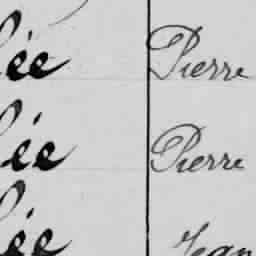 ée Pierre
ée Pierre
ée Jean